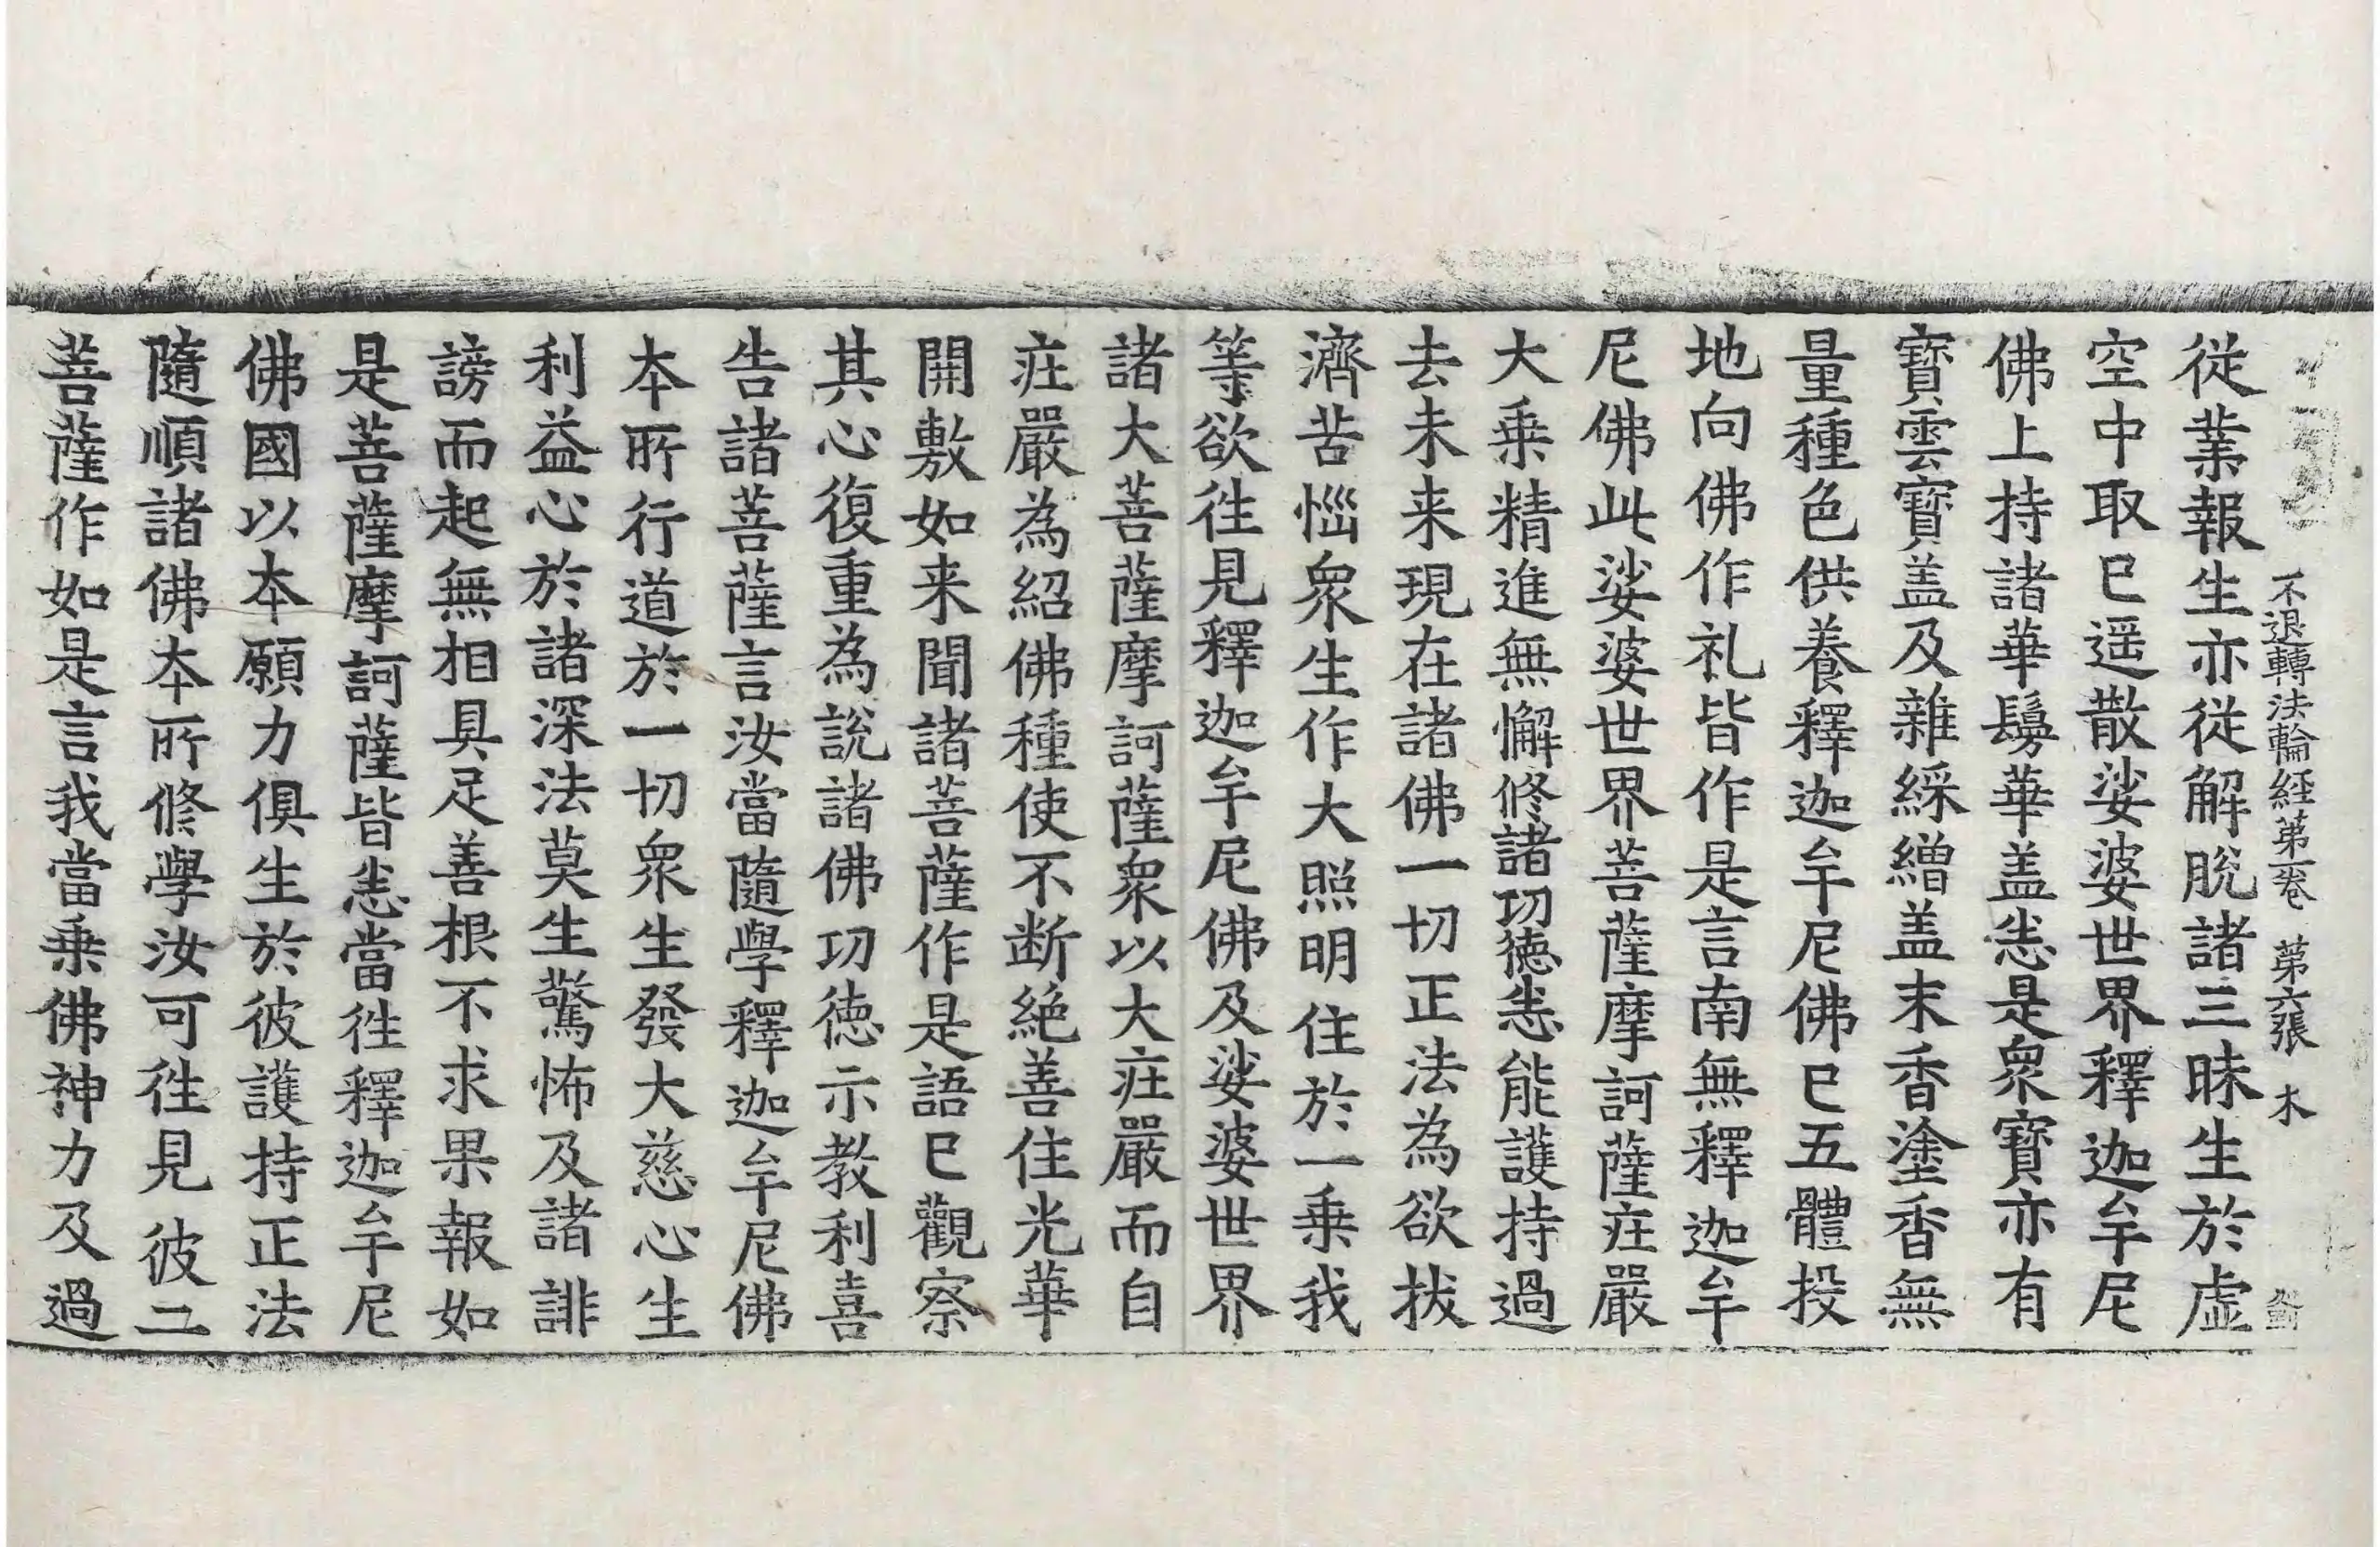 不退轉法輪經第一卷 第六張 木
從業報生亦從解脫諸三昧生於虛
空中取已遥散娑婆世界釋迦牟尼
佛上持諸華鬘華盖悉是衆寶亦有
寶雲寶盖及雜綵繒盖末香塗香無
量種色供養釋迦牟尼佛已五體投
地向佛作礼皆作是言南無釋迦牟
尼佛此娑婆世界菩薩摩訶薩莊嚴
大乘精進無懈修諸功德悉能護持過
去未来現在諸佛一切正法為欲拔
濟苦惱衆生作大照明住於一乘我
等欲往見釋迦牟尼佛及娑婆世界
諸大菩薩摩訶薩衆以大莊嚴而自
莊嚴為紹佛種使不断絶善住光華
開敷如来聞諸菩薩作是語已觀察
其心復重為說諸佛功德示教利喜
告諸菩薩言汝當隨學釋迦牟尼佛
本所行道於一切衆生發大慈心生
利益心於諸深法莫生驚怖及諸誹
謗而起無相具足善根不求果報如
是菩薩摩訶薩皆悉當往釋迦牟尼
佛國以本願力俱生於彼護持正法
隨順諸佛本所修學汝可往見彼二
菩薩作如是言我當乘佛神力及過